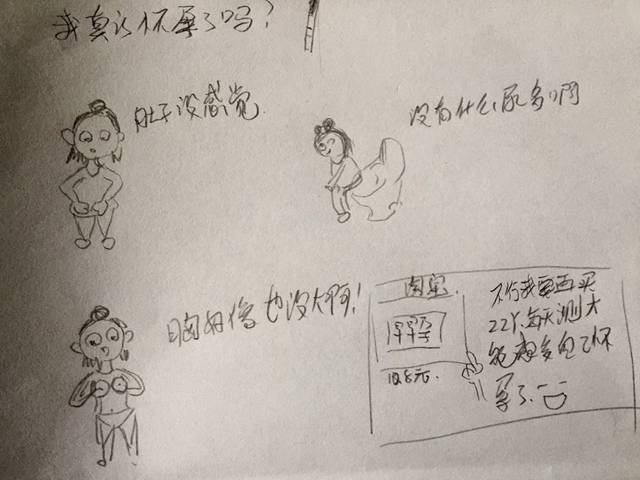 我真的怀孕了吗?
肚子没感觉
没有什么尿多啊
胸好像也没大啊!
淘宝
不行我要再买
22个.每天测才
能感多自己怀
孕了.
元.